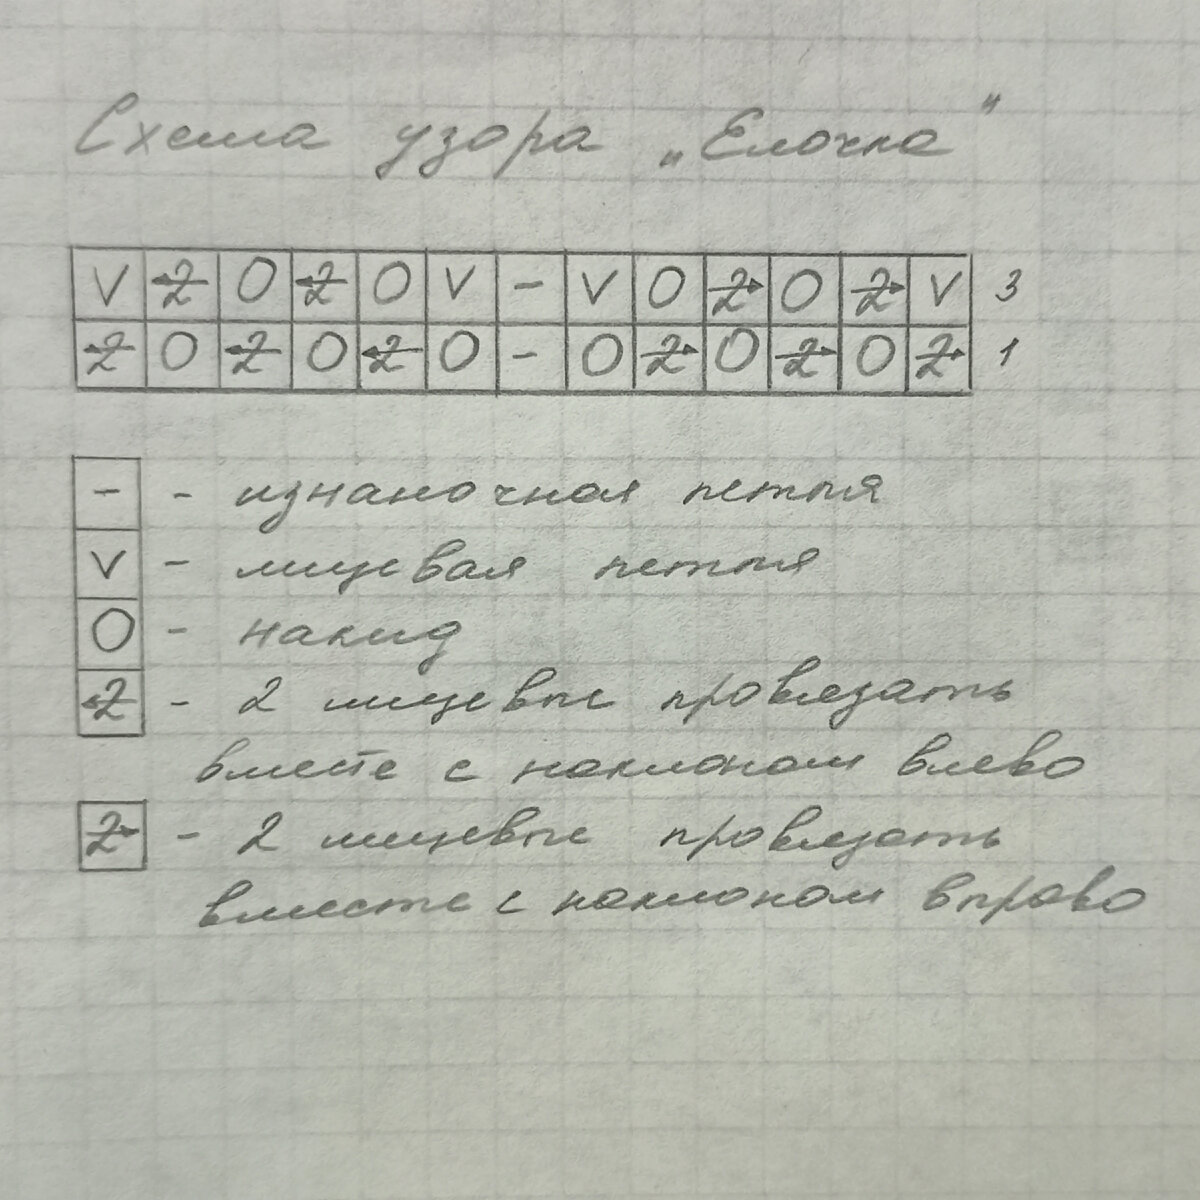 Схема узора „Елочка"
V 2 O 2 O V - V O 2 O 2 V 3
2 O 2 O 2 O - O 2 O 2 O 2 1
- - изнаночная петля
V - лицевая петля
O - накид
2 - 2 лицевые провязать
вместе с наклоном влево
2 - 2 лицевые провязать
вместе с наклоном вправо